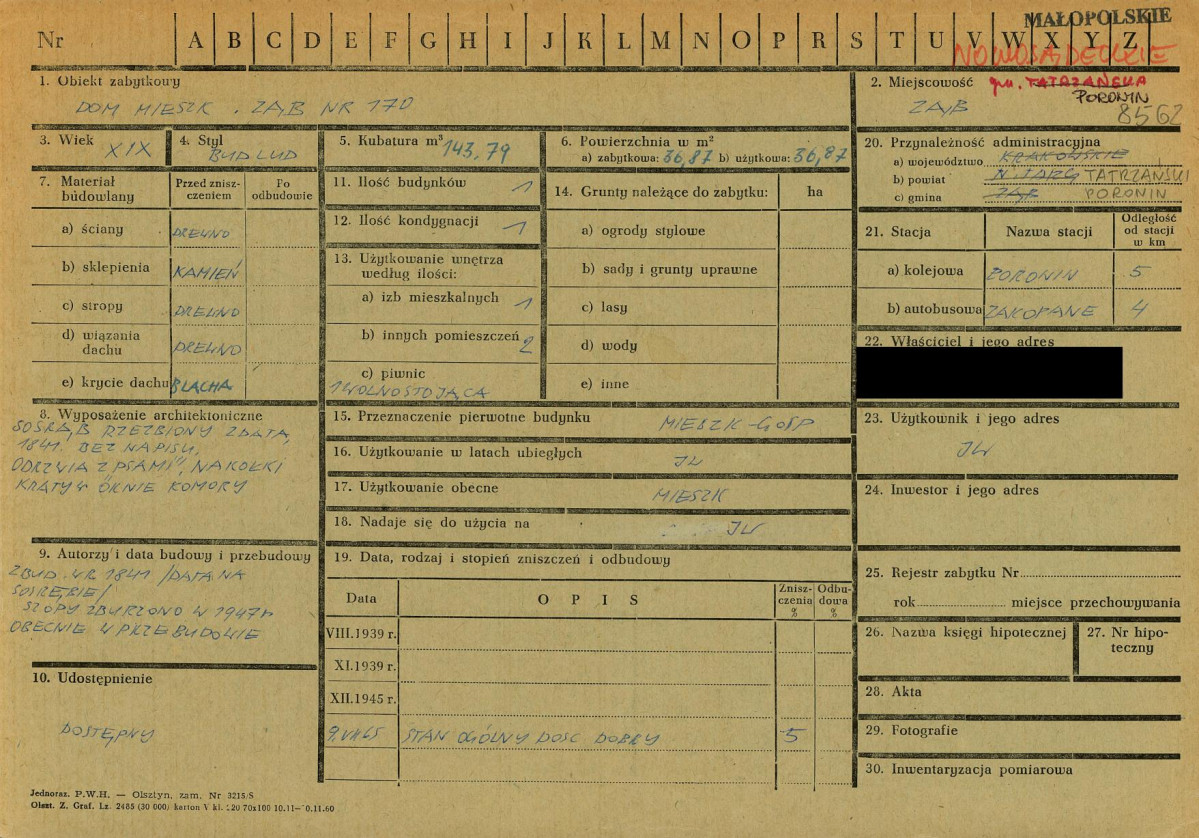 MAŁOPOLSKIE
Nr A B C D E F G H I J K L M N O P R S T U V W X Y Z
NOWOSĄDECKIE
1. Obiekt zabytkowy
DOM MIESZK. ZĄB NR 170
2. Miejscowość gm. TATRZAŃSKA
PORONIN
ZĄB
8562
3. Wiek XIX
4. Styl
BUD LUD
5. Kubatura m³ 143,79
6. Powierzchnia w m²
a) zabytkowa: 36,87 b) użytkowa: 36,87
7. Materiał budowlany
Przed zniszczeniem
Po odbudowie
a) ściany DREWNO
b) sklepienia KAMIEŃ
c) stropy DREWNO
d) wiązania dachu DREWNO
e) krycie dachu BLACHA
8. Wyposażenie architektoniczne
SOSRĄB RZEZBIONY Z DATĄ,
1841. BEZ NAPISU,
ODRZWIA Z "PSAMI", NA KOŁKI
KRATY W OKNIE KOMORY
9. Autorzy i data budowy i przebudowy
ZBUD. W R 1841 /DATA NA
SOSRĘBIE/
SZOPY ZBURZONO W 1947 r
OBECNIE W PRZEBUDOWIE
10. Udostępnienie
DOSTĘPNY
11. Ilość budynków 1
12. Ilość kondygnacji 1
13. Użytkowanie wnętrza
według ilości:
a) izb mieszkalnych 1
b) innych pomieszczeń 2
c) piwnic
1 WOLNOSTOJĄCA
14. Grunty należące do zabytku: ha
a) ogrody stylowe
b) sady i grunty uprawne
c) lasy
d) wody
e) inne
15. Przeznaczenie pierwotne budynku MIESZK-GOSP
16. Użytkowanie w latach ubiegłych JW
17. Użytkowanie obecne MIESZK
18. Nadaje się do użycia na JW
19. Data, rodzaj i stopień zniszczeń i odbudowy
Data OPIS Zniszczenia % Odbudowa %
VIII.1939 r.
XI.1939 r.
XII.1945 r.
9.VII 65 STAN OGÓLNY DOSC DOBRY 5
20. Przynależność administracyjna
a) województwo KRAKOWSKIE
b) powiat N. TARG TATRZAŃSKI
c) gmina ZĄB PORONIN
21. Stacja Nazwa stacji Odległość od stacji w km
a) kolejowa PORONIN 5
b) autobusowa ZAKOPANE 4
22. Właściciel i jego adres
23. Użytkownik i jego adres
JW
24. Inwestor i jego adres
25. Rejestr zabytku Nr
rok miejsce przechowywania
26. Nazwa księgi hipotecznej
27. Nr hipoteczny
28. Akta
29. Fotografie
30. Inwentaryzacja pomiarowa
Jednoraz. P.W.H. — Olsztyn, zam. Nr 3215/S
Olszt. Z. Graf. Lz. 2485 (30 000) karton V kl. 220 70x100 10.11—